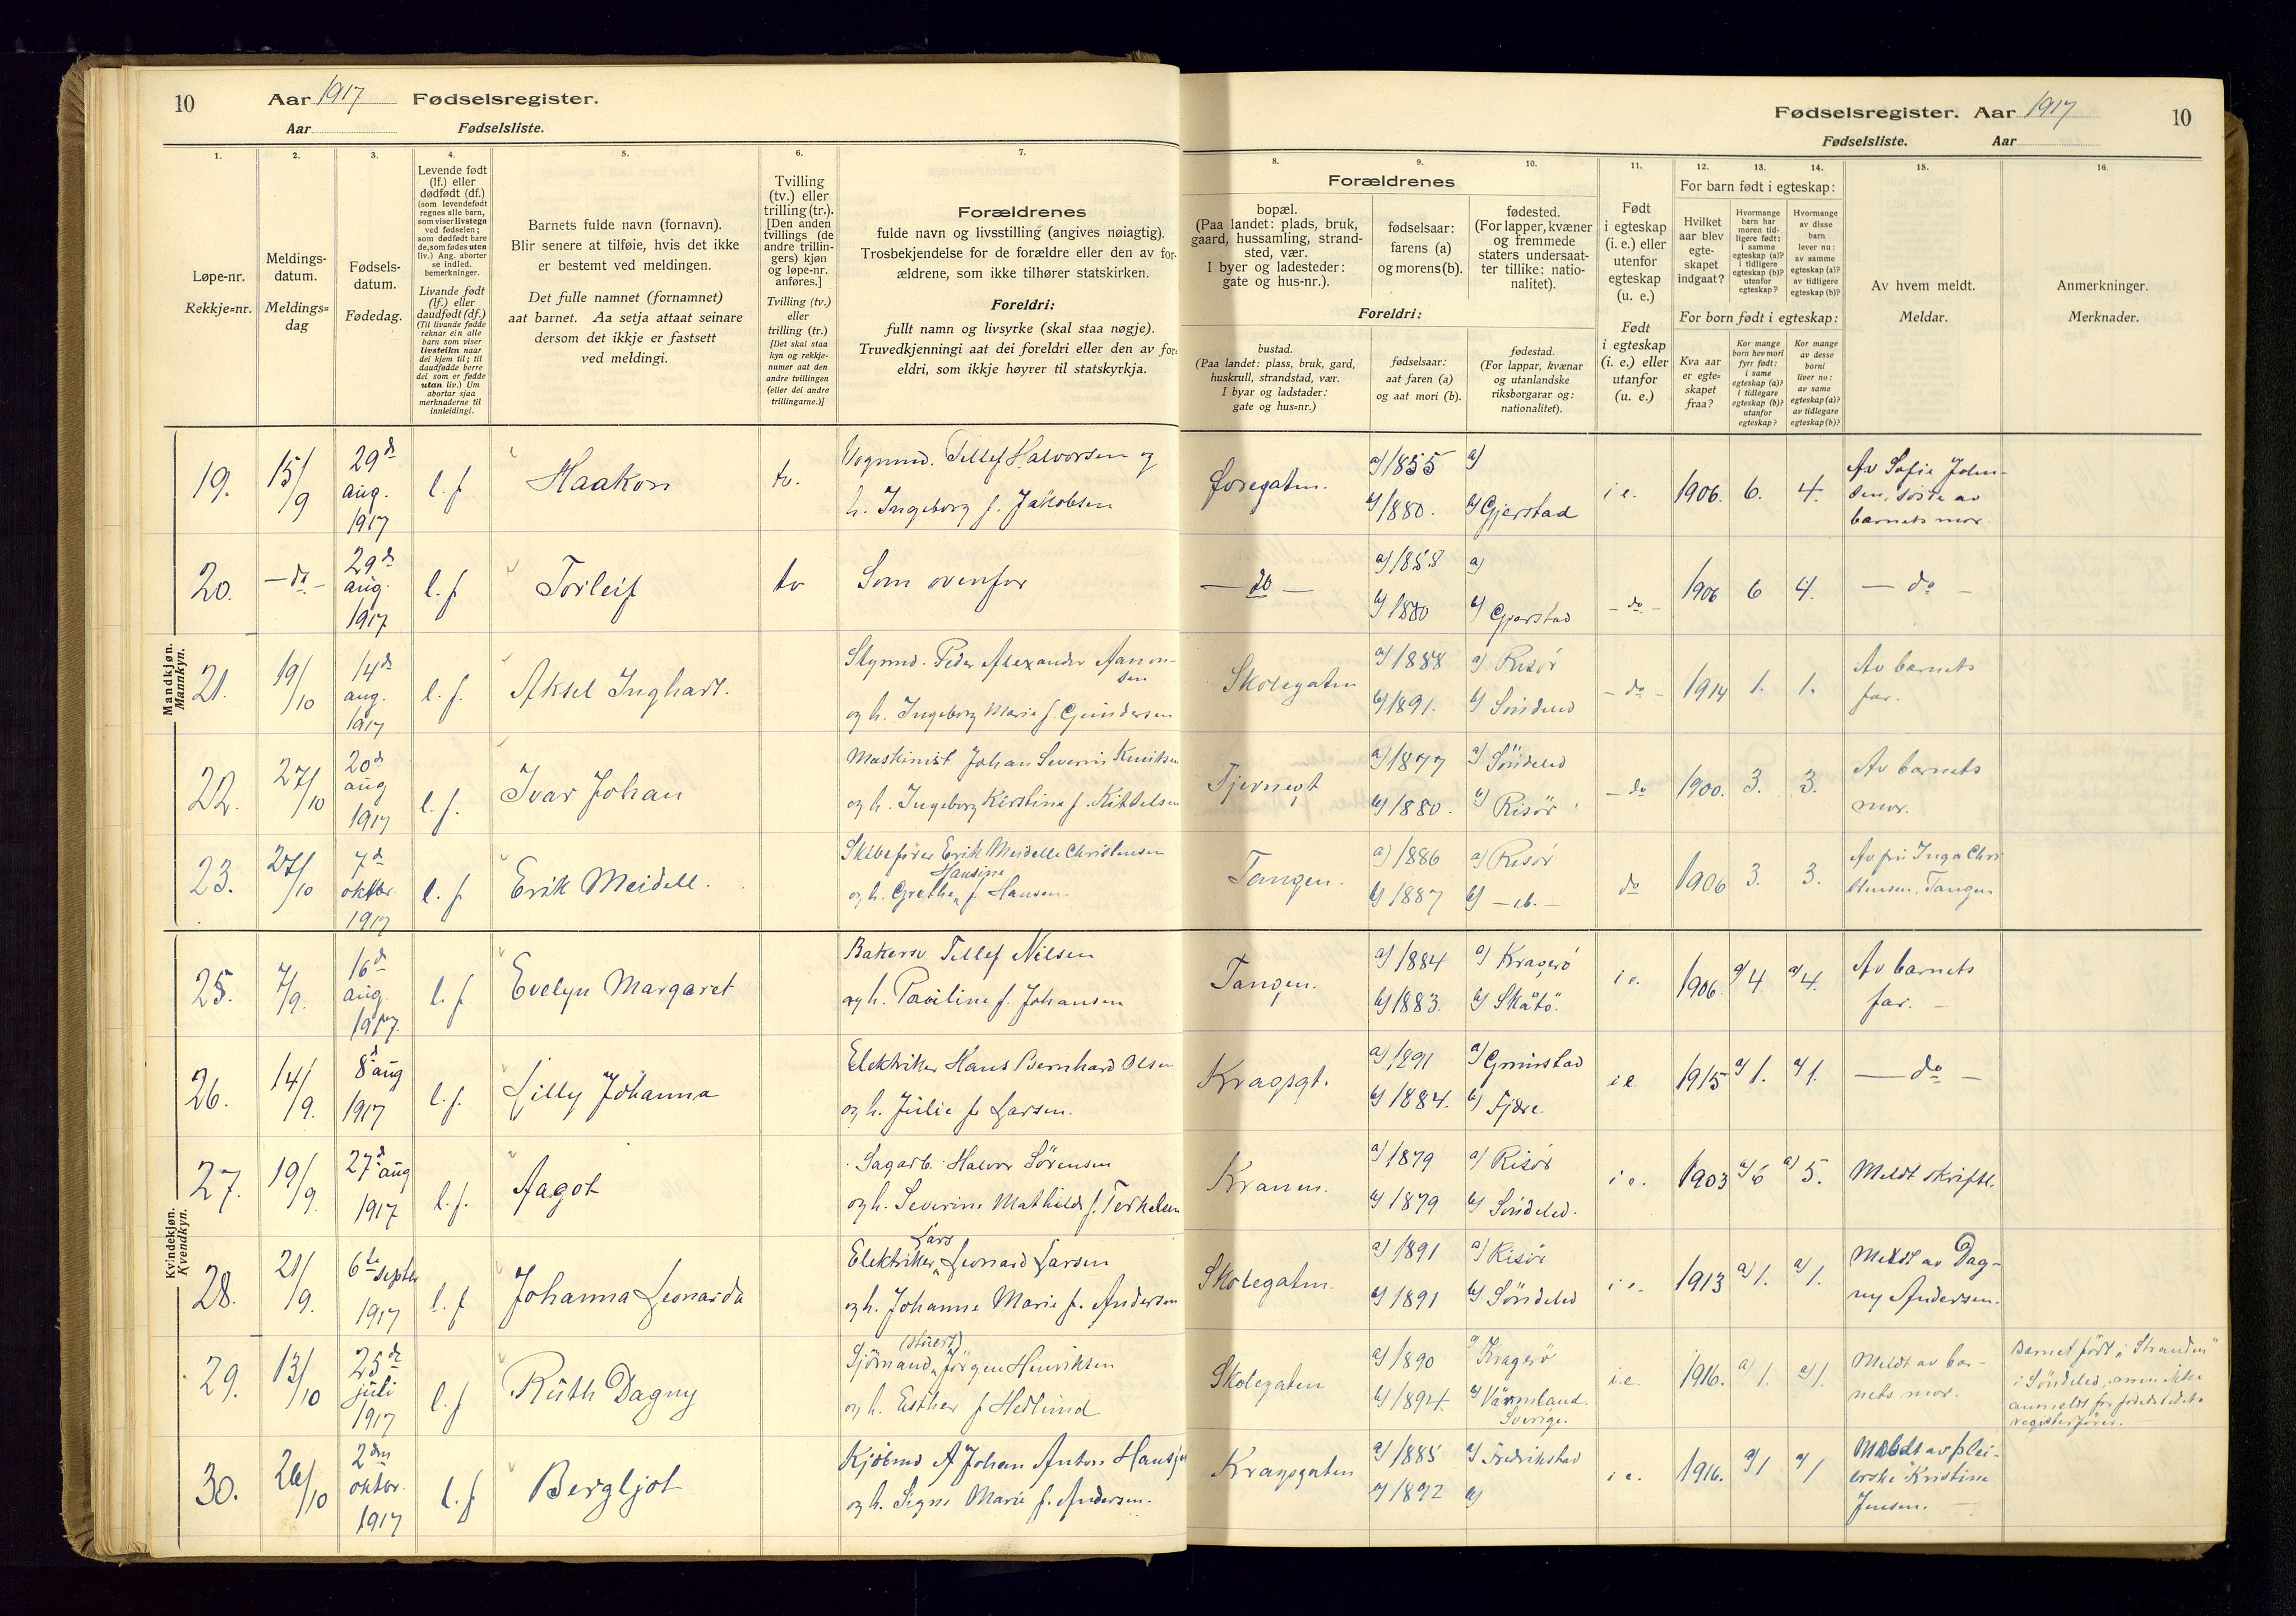 10 Aar 1917 Fødselsregister.
Aar Fødselsliste.
Fødselsregister. Aar 1917 10
Fødselsliste. Aar
1. 2. 3. 4. 5. 6. 7.
Løpe-nr.
Rekkje-nr.
Meldings-
datum.
Meldings-
dag
Fødsels-
datum.
Fødedag.
Levende født
(lf.) eller
dødfødt (df.)
(som levendefødt
regnes alle barn,
som viser livstegn
ved fødselen;
som dødfødt bare
de, som fødes uten
liv.) Ang. aborter
se indled.
bemerkninger.
Livande født
(lf.) eller
daudfødt (df.)
(Til livande fødde
reknar ein alle
barn som viser
livsteikn naar
dei kjem til; til
daudfødde berre
dei som er fødde
utan liv.) Um
abortar sjaa
merknaderne til
innleidingi.
Barnets fulde navn (fornavn).
Blir senere at tilføie, hvis det ikke
er bestemt ved meldingen.
Det fulle namnet (fornamnet)
aat barnet. Aa setja attaat seinare
dersom det ikkje er fastsett
ved meldingi.
Tvilling
(tv.) eller
trilling (tr.).
[Den anden
tvillings (de
andre trillin-
gers) kjøn
og løpe-nr.
anføres.]
Tvilling (tv.)
eller
trilling (tr.)
[Det skal staa
kyn og rekkje-
numer aat den
andre tvillingen
(eller dei andre
trillingarne.)]
Forældrenes
fulde navn og livsstilling (angives nøiagtig).
Trosbekjendelse for de forældre eller den av for-
ældrene, som ikke tilhører statskirken.
Foreldri:
fullt namn og livsyrke (skal staa nøgje).
Truvedkjenningi aat dei foreldri eller den av for-
eldri, som ikkje høyrer til statskyrkja.
8. 9. 10. 11. 12. 13. 14. 15. 16.
Forældrenes
bopæl.
(Paa landet: plads, bruk,
gaard, hussamling, strand-
sted, vær.
I byer og ladesteder:
gate og hus-nr.).
fødselsaar:
farens (a)
og morens (b).
fødested.
(For lapper, kvæner
og fremmede
staters undersaat-
ter tillike: natio-
nalitet).
Foreldri:
bustad.
(Paa landet: plass, bruk, gard,
huskrull, strandstad, vær.
I byar og ladstader:
gate og hus-nr.)
fødselsaar:
aat faren (a)
og aat mori (b).
fødestad.
(For lappar, kvænar
og utanlandske
riksborgarar og:
nationalitet).
Født
i egteskap
(i. e.) eller
utenfor
egteskap
(u. e.)
Født
i egteskap
(i. e.) eller
utanfor
(u. e.)
For barn født i egteskap:
Hvilket
aar blev
egte-
skapet
indgaat?
Hvormange
barn har
moren tid-
ligere født:
i samme
egteskap (a)?
i tidligere
egteskap (b)?
utenfor
egteskap?
Hvormange
av disse
barn
lever nu:
av samme
egteskap (a)?
av tidligere
egteskap (b)?
For born født i egteskap:
Kva aar
er egte-
skapet
fraa?
Kor mange
born hev mori
fyrr født:
i same
egteskap (a)?
i tidlegare
egteskap (b)?
utanfor
egteskap?
Kor mange
av desse
borni
liver no:
av same
egteskap (a)?
av tidlegare
egteskap (b)?
Av hvem meldt.
Meldar.
Anmerkninger.
Merknader.
Mandkjøn.
Mannkyn.
19. 15/9 29de aug. 1917 l. f. Haakon tv. Vognmd. Tellef Halvorsen og
h. Ingeborg f. Jakobsen
a) 1855 a)
b) 1880. b) Gjerstad
i e. 1906. 6. 4. Av Sofie John-
sen, søster av
barnets mor.
20. — do — 29de aug. 1917 l. f. Torleif tv Som ovenfor
— do — a) 1855 a)
b) 1880 b) Gjerstad
— do — 1906 6 4. — do —
21. 19/10 14de aug. 1917 l. f. Aksel Inghart. Peder Alexander Aanon-
sen
og h. Ingeborg Marie f. Gundersen
Skolegaten a) 1888 a) Risør
b) 1891. b) Søndeled
— do — 1914 1. 1. Av barnets
far.
22. 27/10 20de aug 1917 l. f. Ivar Johan Maskinist Johan Severin
og h. Ingeborg Kirstine f. Kittelsen
a) 1877 a) Söndeled
b) 1880. b) Risör
— do 1900. 3. 3. Av barnets
mor.
23. 27/10 7de oktbr. 1917 l. f. Erik Meidell. Skibsfører Erik Meidell Christensen
Hansine
og h. Grethe f. Hansen.
Tangen. a) 1886 a) Risør
b) 1887 b) — do. —
do 1906 3. 3. Av fru Inga Chri
stensen, Tangen
Kvindekjøn.
Kvendkyn.
25. 7/9. 16de aug. 1917. l. f. Evelyn Margaret Bakersv. Tellef Nilsen
og h. Pauline f. Johansen
Tangen. a) 1884 a) Kragerö
b) 1883. b) Skåtö.
i e. 1906. a) 4 a) 4. Av barnets
far. —
26. 14/9. 8de aug 1917 l. f. Lilly Johanna Elektriker Hans Bernhard Olsen
og h. Julie f. Larsen.
Kragsgt. a) 1891 a) Grimstad
b) 1884. b) Fjære.
i e 1915 a) 1. a) 1. — do —
27. 19/9. 27de aug 1917 l. f. Aagot Sagarb. Halvor Sörensen
og h. Severine Mathilde f. Terkelsen
Kranen. a) 1879 a) Risör
b) 1879 b) Söndeled.
i e. 1903 a) 6 a) 5. Meldt skriftl.
28. 21/9. 6te septbr 1917 l. f. Johanna Leonarda Lars
Elektriker Leonard Larsen
og h. Johanne Marie f. Andersen
Skolegaten. a) 1891 a) Risör
b) 1891 b) Söndeled
i e. 1913 a) 1. a) 1. Meldt av Dag-
ny Andersen.
29. 13/10 25de juli 1917 l. f Ruth Dagny (stuert)
Sjömand Jörgen Henriksen
og h. Esther f Hedlund
Skolegaten a) 1890 a) Kragerö
b) 1894. b) Värmland.
Sverige.
i.e. 1916. a) 1. a) 1. Meldt av bar-
nets mor.
Barnet födt i "Stranden"
i Söndeled, men ikke
anmeldt for fødestedets
registerfører. —
30. 26/10 2den oktbr. 1917 l. f. Bergljot Kjøbmd A Johan Anton Hansen
og h. Signe Marie f. Andersen.
Kragsgaten a) 1885 a) Fredrikstad
b) 1892 b)
i e. 1916. a) 1 a) 1 Meldt av plei-
erske Kristine
Jensen. —